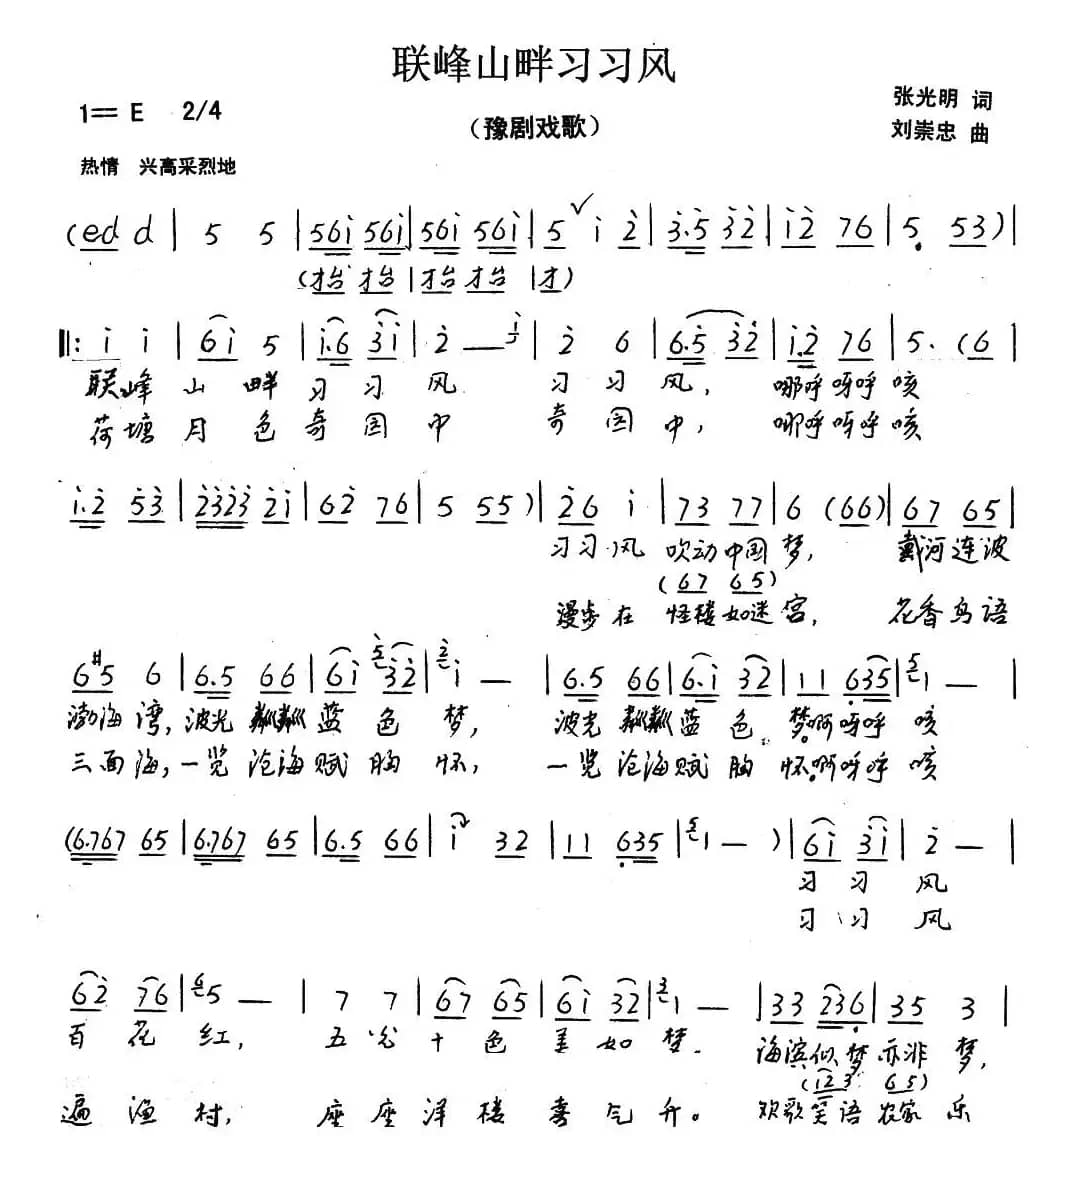 联峰山畔习习风
1== E 2/4
（豫剧戏歌）
张光明 词
刘崇忠 曲
热情 兴高采烈地
(ed d | 5 5 | 56i 56i | 56i 56i | 5 ✓ i 2 | 3.5 32 | i2 76 | 5. 53 ) |
(抬 抬 | 抬 抬 | 才)
‖: i i | 6i 5 | i.6 3i | 2 — | 2 6 | 6.5 32 | i.2 76 | 5. (6 |
联峰 山 畔 习 习 风 习 习 风， 哪呼呀呼咳
荷塘 月 色 奇 园 中 奇 园 中， 哪呼呀呼咳
i.2 53 | 2323 2i | 62 76 | 5 55 ) | 26 i | 73 77 | 6 (66) | 67 65 |
习习风 吹动中国梦， 戴河连波
(67 65)
漫步在 怪楼如迷宫， 花香鸟语
#65 6 | 6.5 66 | 6i 32 | i — | 6.5 66 | 6.i 32 | 11 635 | 1 — |
渤海湾，波光粼粼蓝 色 梦， 波光粼粼蓝 色 梦啊呀呼 咳
三面海，一览沧海赋 胸 怀， 一览沧海赋 胸 怀啊呀呼 咳
(6.767 65 | 6.767 65 | 6.5 66 | i 32 | 11 635 | 1 — ) | 6i 3i | 2 — |
习 习 风
习 习 风
62 76 | 5 — | 7 7 | 67 65 | 6i 32 | 1 — | 33 236 | 35 3 |
百 花 红， 五 光 十 色 美 如 梦. 海滨似梦亦非 梦，
(123 65)
遍 渔 村， 座 座 洋 楼 喜 气 升。 欢歌笑语农家 乐